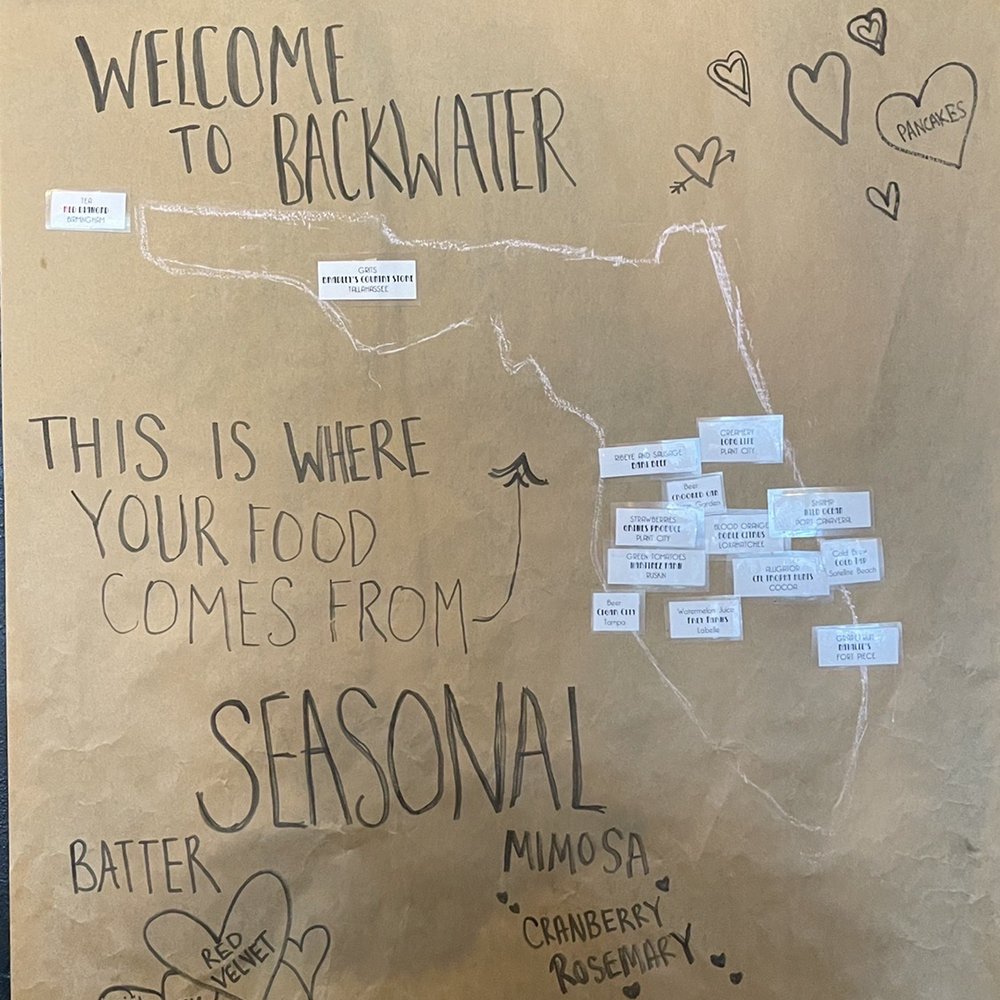 WELCOME
TO BACKWATER
PANCAKES
TEA
RED DIAMOND
BIRMINGHAM
GRITS
BRADLEY'S COUNTRY STORE
TALLAHASSEE
THIS IS WHERE
YOUR FOOD
COMES FROM
CREAMERY
LONG LIFE
PLANT CITY
RIBEYE AND SAUSAGE
BEEF
Beer
CROOKED CAN
Garden
SHRIMP
WILD OCEAN
PORT CANAVERAL
STRAWBERRIES
PRODUCE
PLANT CITY
BLOOD ORANGE
NOBLE CITRUS
LOXAHATCHEE
GREEN TOMATOES
MARTINEZ FARM
RUSKIN
ALLIGATOR
CFL TROPHY HUNTS
COCOA
Cold Brew
COLD TAP
Satellite Beach
Beer
CIGAR CITY
Tampa
Watermelon Juice
FREY FARMS
Labelle
GRAPEFRUIT
NATALIE'S
FORT PIECE
SEASONAL
BATTER
RED
VELVET
MIMOSA
CRANBERRY
ROSEMARY